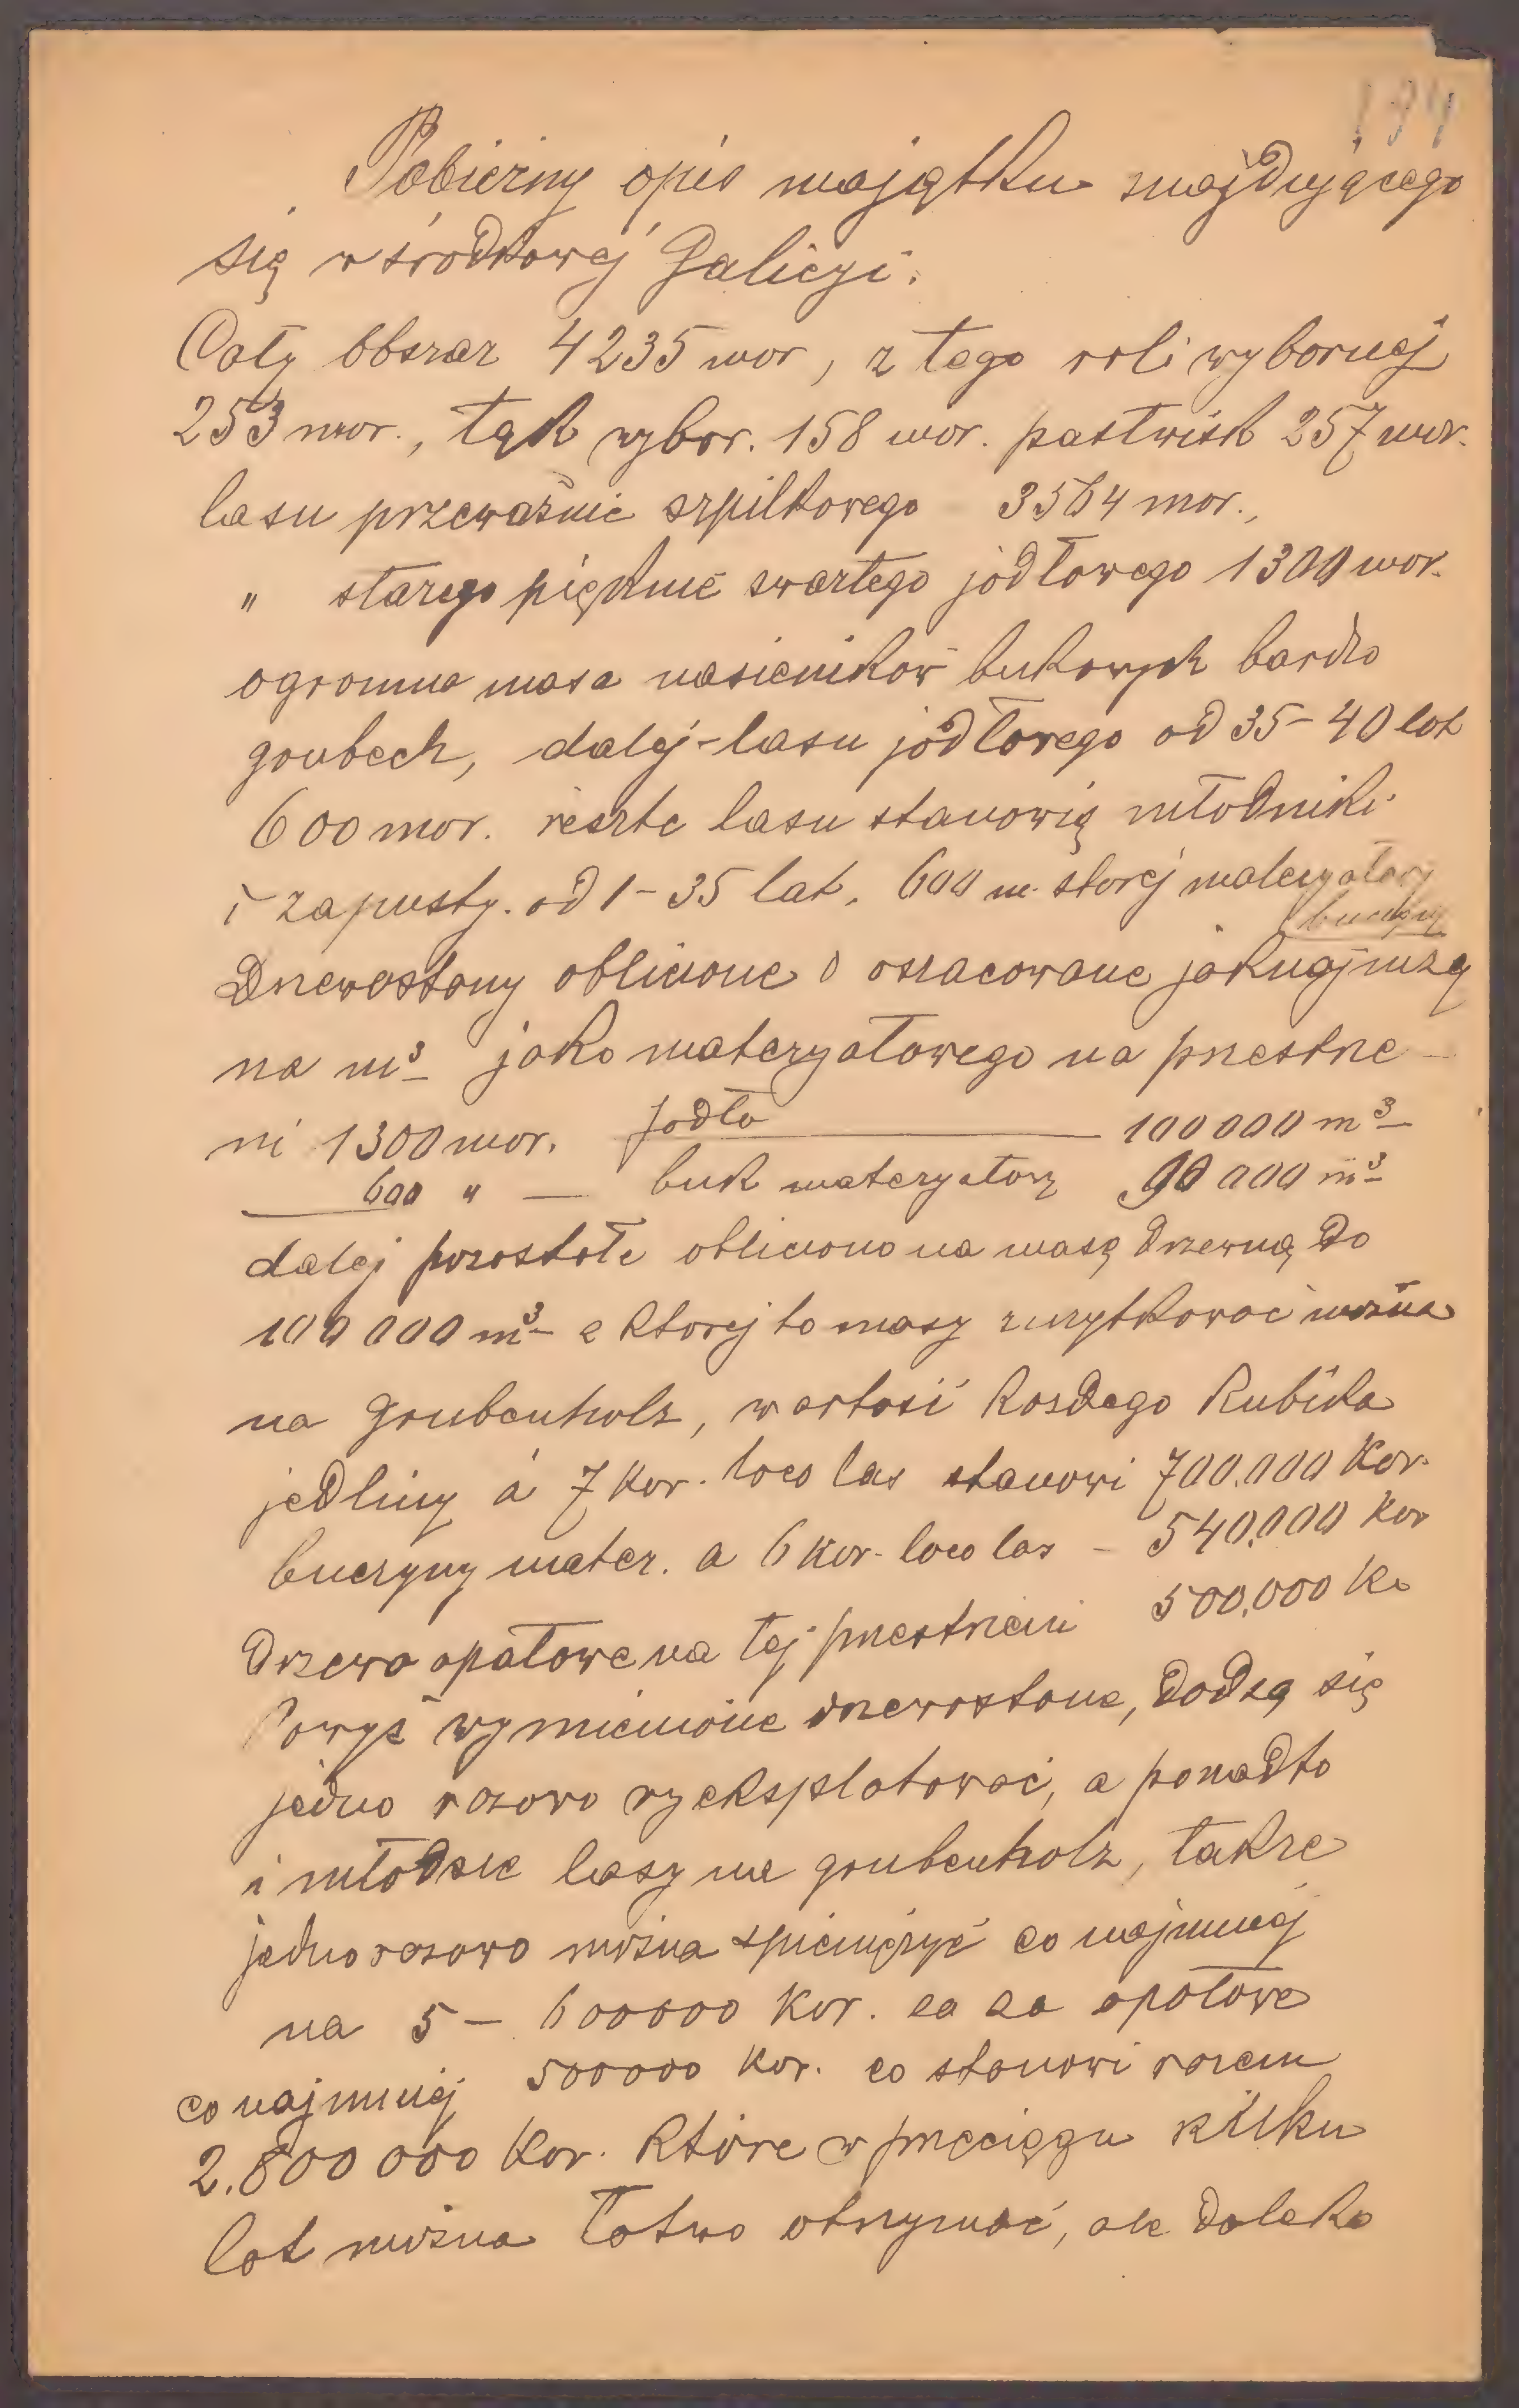 194
Pobieżny opis majątku znajdującego
się w środkowej Galicyi.
Cały obszar 4235 mor, z tego roli wybornej
253 mor., łąk wybor. 158 mor. pastwisk 257 mor.
lasu przeważnie szpilkowego 3564 mor.,
" starego pięknie zwartego jodłowego 1300 mor.
ogromna masa nasieników bukowych bardzo
grubech, dalej - lasu jodłowego od 35 - 40 lat
600 mor. reszte lasu stanowią młodniki
i zapusty. od 1 - 35 lat. 600 m. starej materyałowej
buczyny
Drzewostany obliczone i oszacowane jaknajniżej
na m³ jako materyałowego na przestrze-
ni 1300 mor. Jodła — 100 000 m³
600 " — buk materyałowy 90 000 m³
dalej pozostałe obliczono na masę drzewną do
100 000 m³ z ktorej to masy zużytkować można
na grubenholz, wartość każdego kubika
jedliny á 7 Kor. loco las stanowi 700.000 Kor.
buczyny mater. a 6 Kor. loco las - 540.000 Kor
Drzewo opałowe na tej przestrzeni 500.000 K.
Powyż wymienione drzewostane, dadzą się
jedno razowo wyeksplotować, a ponadto
i młodsze lasy na grubenholz, także
jednorazowo można spieniężyć co najmniej
na 5 - 600000 Kor. za za opałowe
co najmniej 500000 Kor. co stanowi razem
2.800 000 Kor. które w przeciągu kilku
lat można łatwo otrzymać, ale daleko